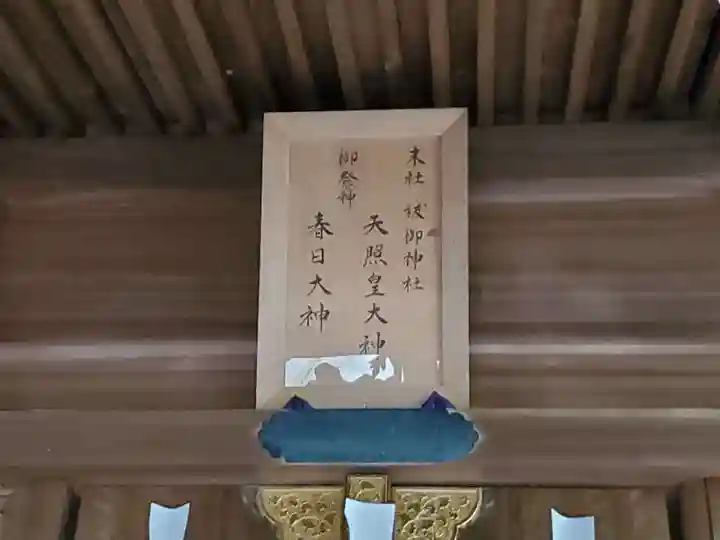 末社 祓御神社
御祭神
天照皇大神
春日大神